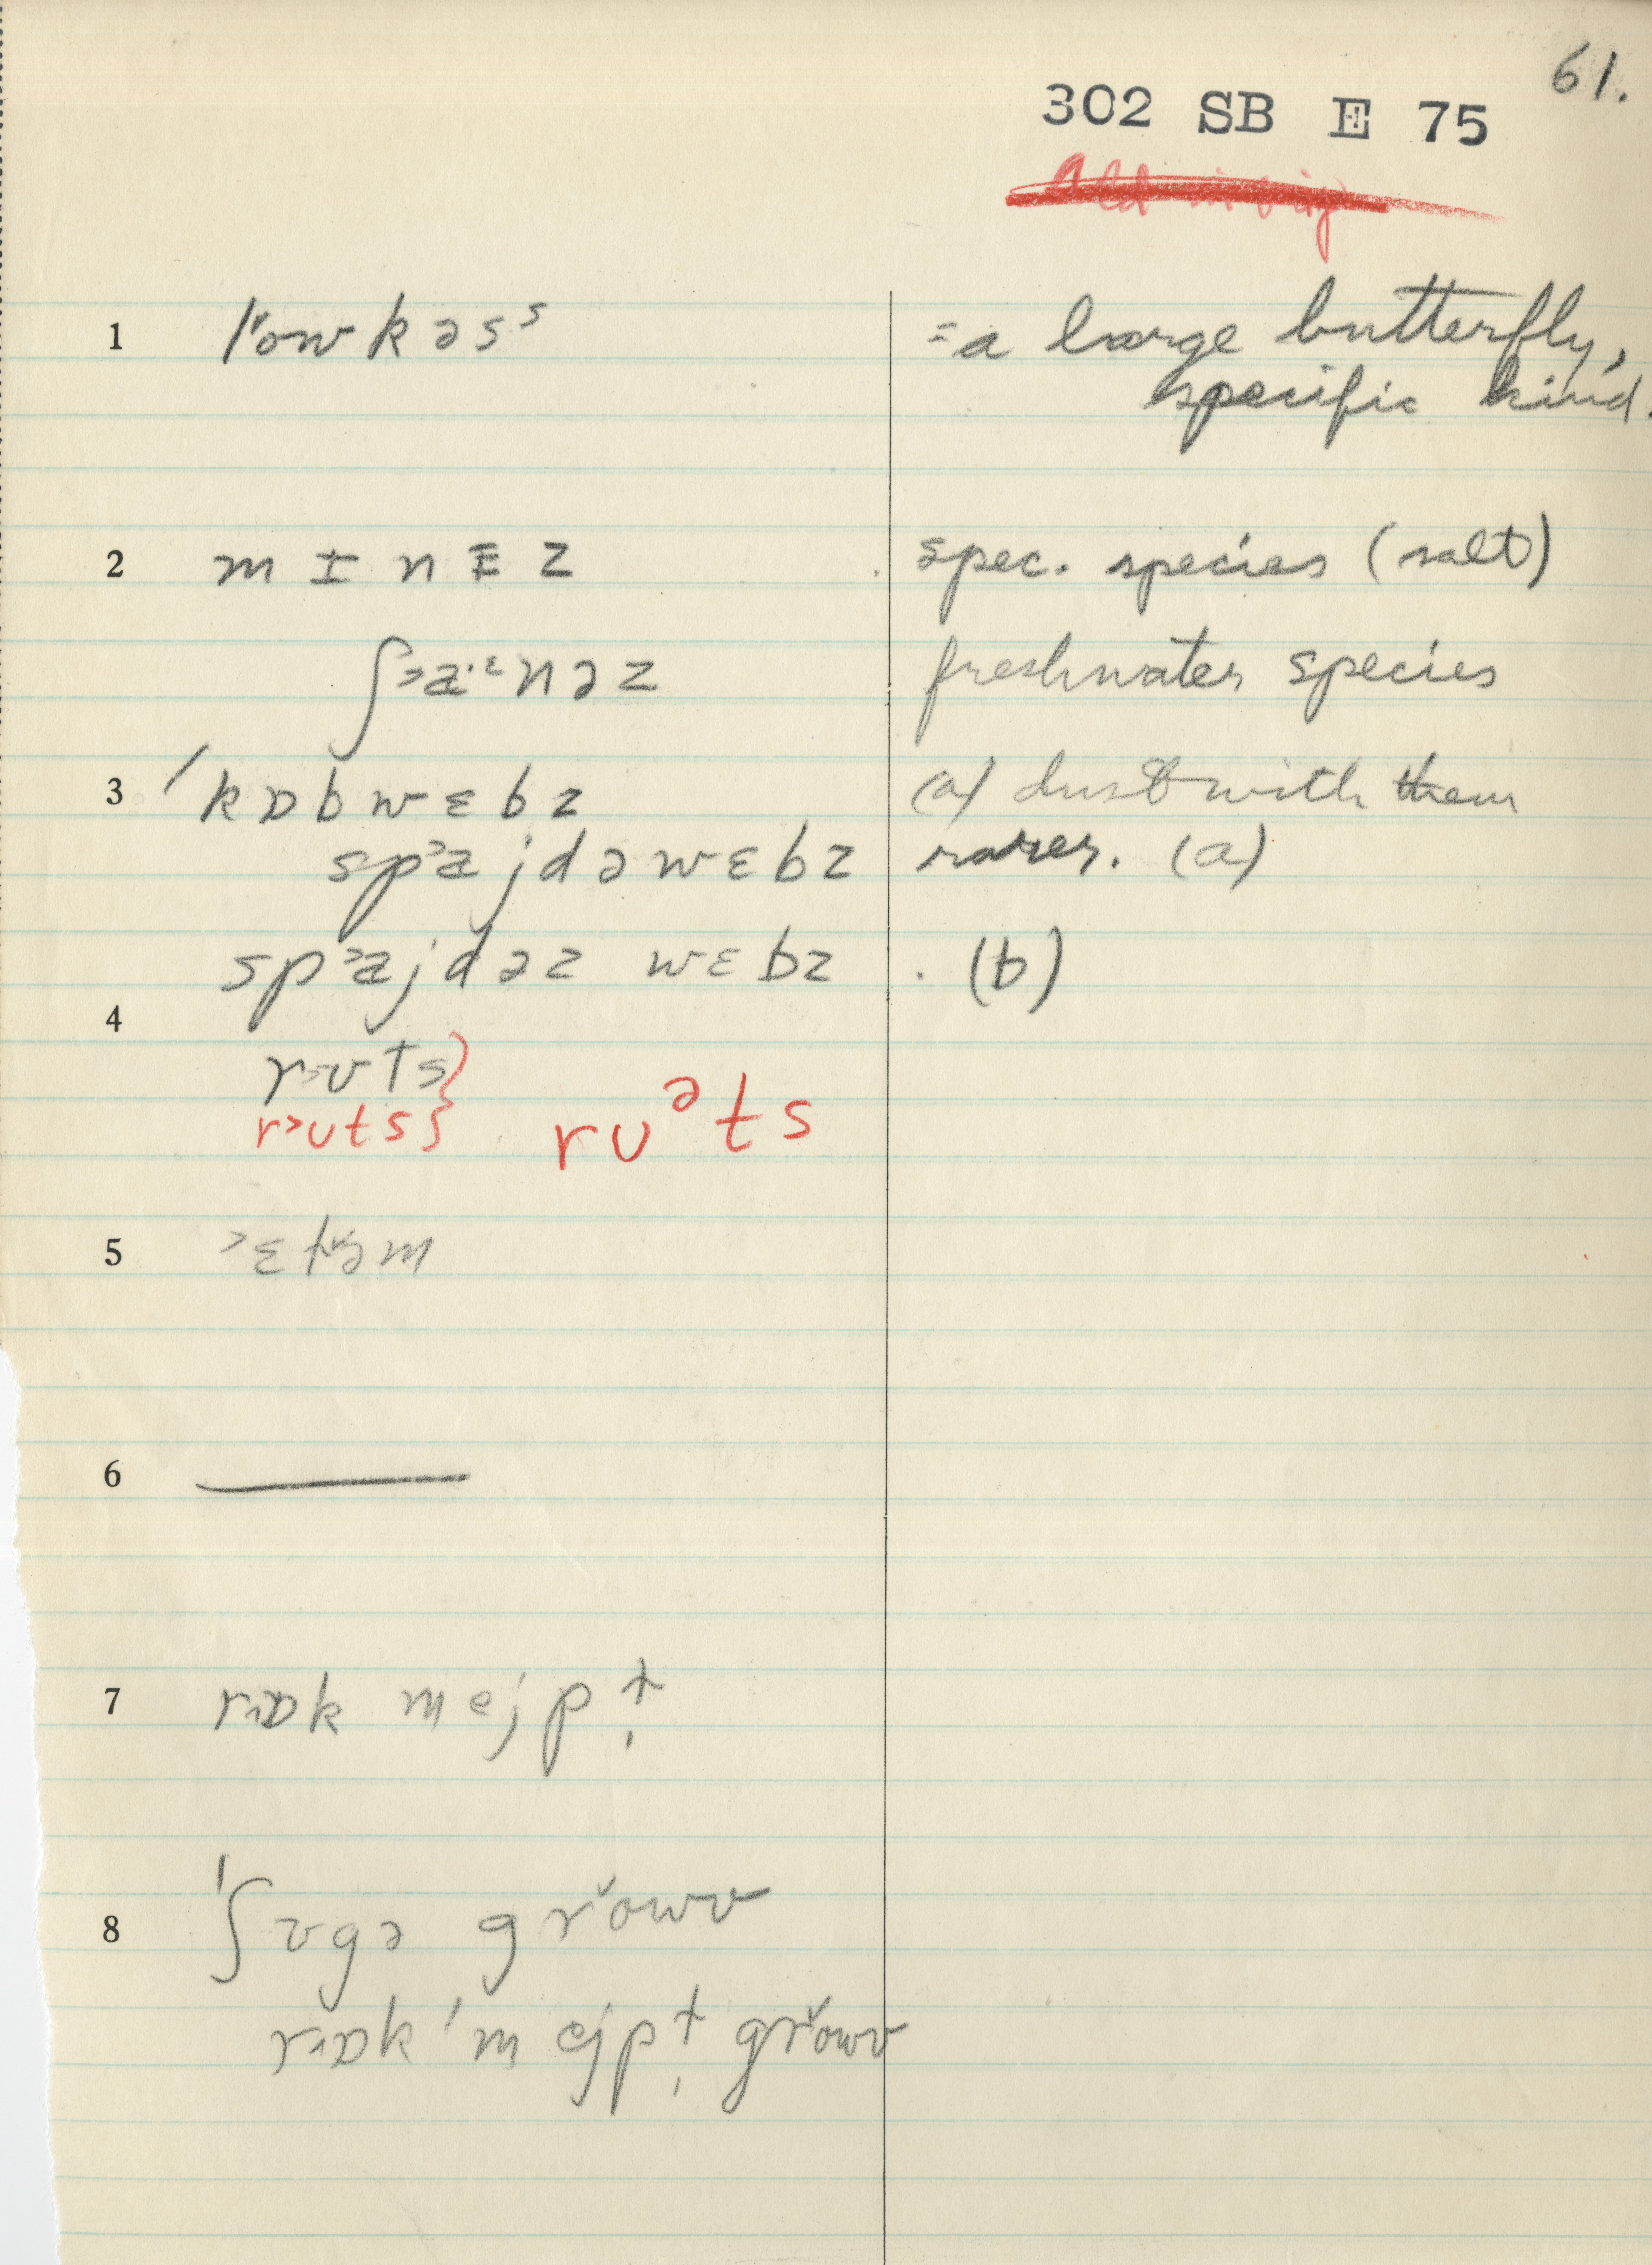 61.
302 SB E 75
1 l˅owkəsˢ =a large butterfly,
specific kind.
2 m ɪ n ɪ z spec. species (salt)
ʃ˃a·ᵋnəz freshwater species
3 ˈkɒbwɛbz (a) dust with them
sp˃ajdəwɛbz rarer. (a)
sp˃ajdəz wɛbz . (b)
4
r˃ʊts}
r˃ʊts} rʊᵊts
5 ˃ɛt̬əm
6 ———
7 r˄ɒk mejpl̩
8 ˈʃʊgə gr˅owv
r˄ɒk ˈmejpl̩ gr˅owv